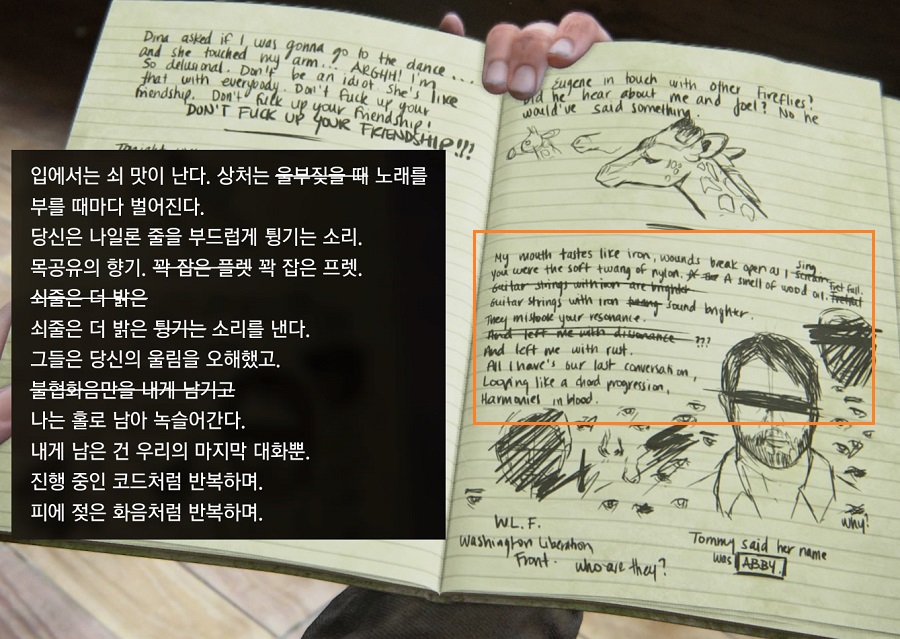 Dina asked if I was gonna go to the dance...
and she touched my arm... ARGHH! I'm
so delusional. Don't be an idiot she's like
that with everybody. Don't fuck up your
friendship. Don't fuck up your friendship!
DON'T FUCK UP YOUR FRIENDSHIP!!!
입에서는 쇠 맛이 난다. 상처는 울부짖을 때 노래를
부를 때마다 벌어진다.
당신은 나일론 줄을 부드럽게 튕기는 소리.
목공유의 향기. 꽉 잡은 플렛 꽉 잡은 프렛.
쇠줄은 더 밝은
쇠줄은 더 밝은 튕기는 소리를 낸다.
그들은 당신의 울림을 오해했고.
불협화음만을 내게 남기고
나는 홀로 남아 녹슬어간다.
내게 남은 건 우리의 마지막 대화뿐.
진행 중인 코드처럼 반복하며.
피에 젖은 화음처럼 반복하며.
Eugene in touch with other Fireflies?
Did he hear about me and Joel? No he
would've said something.
My mouth tastes like iron, wounds break open as I scream sing
you were the soft twang of nylon. A smell of wood oil. Fretful Fret full.
Guitar strings with iron are brighter
Guitar strings with iron sound brighter.
They mistook your resonance.
And left me with dissonance ???
And left me with rust.
All I have's our last conversation,
Looping like a chord progression,
Harmonies in blood.
why?
W.L.F.
Washington Liberation
Front. who are they?
Tommy said her name
was ABBY.